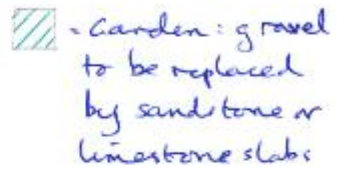 = Garden: gravel
to be replaced
by sandstone or
limestone slabs